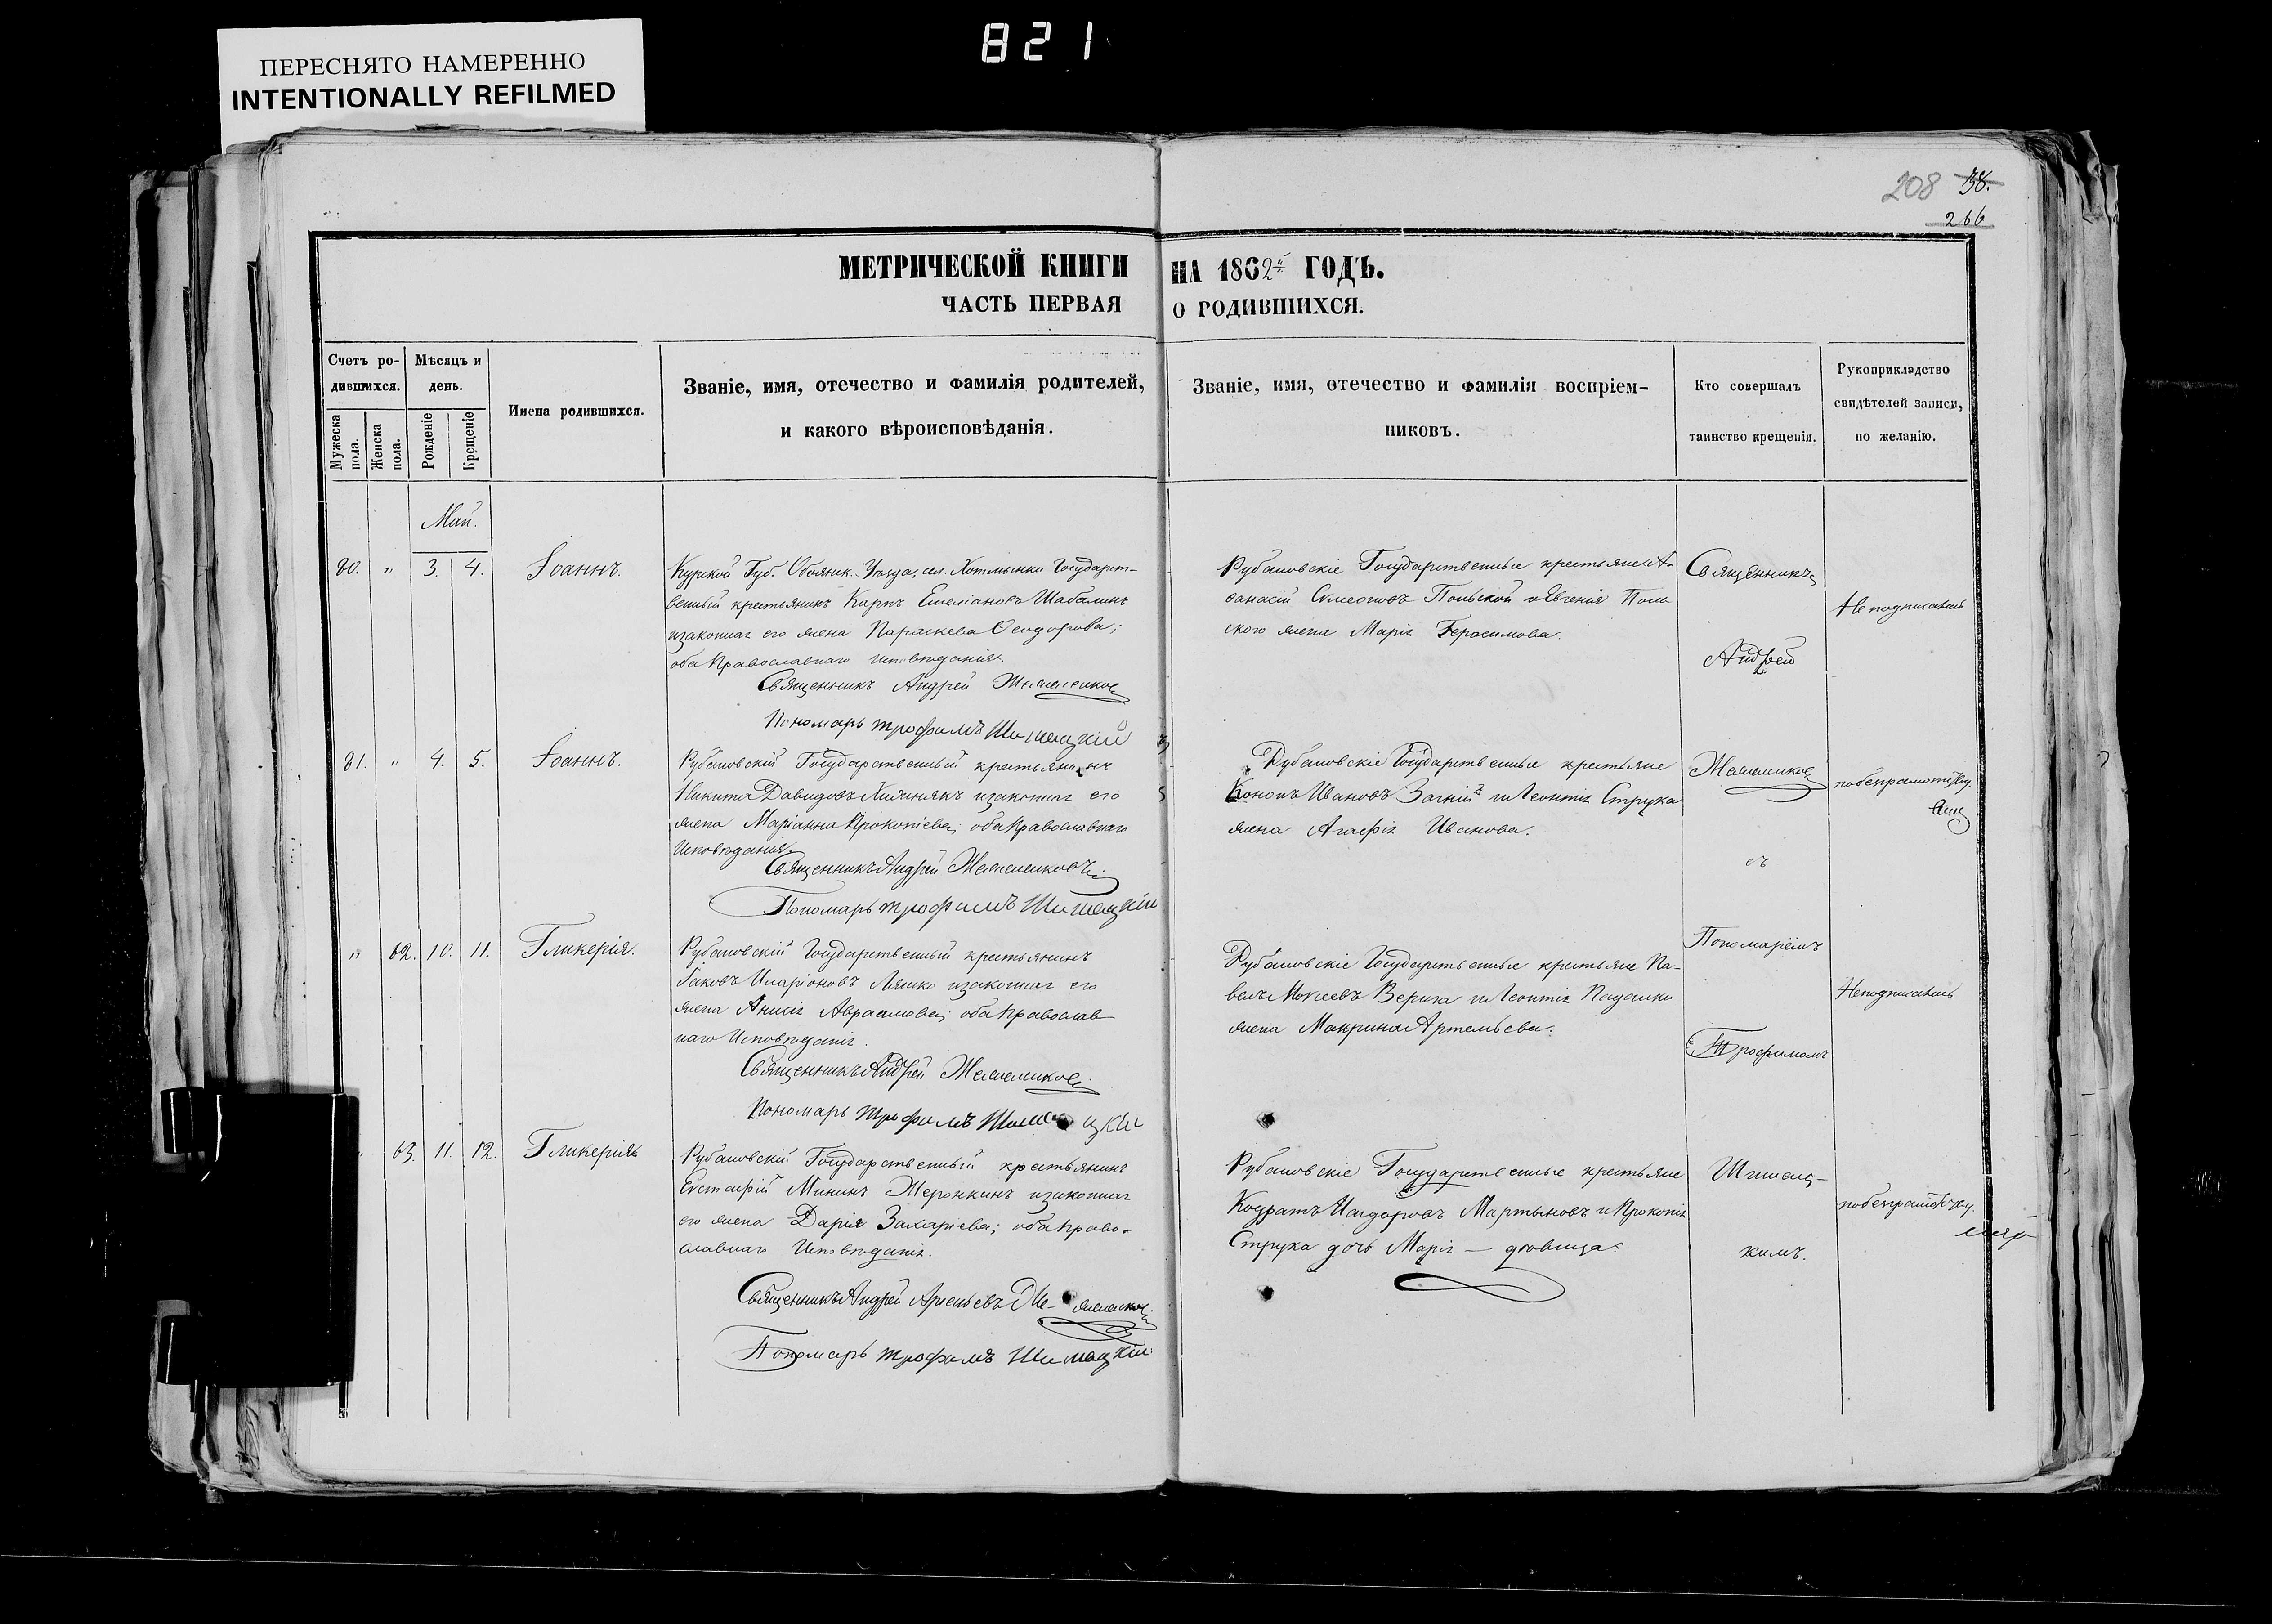 821
ПЕРЕСНЯТО НАМЕРЕННО
INTENTIONALLY REFILMED
208 38.
266
МЕТРИЧЕСКОЙ КНИГИ НА 1862й ГОДЪ.
ЧАСТЬ ПЕРВАЯ О РОДИВШИХСЯ.
Счетъ родившихся.
Мужеска пола.
Женска пола.
Мѣсяцъ и день.
Рожденіе
Крещеніе
Имена родившихся.
Званіе, имя, отечество и фамилія родителей,
и какого вѣроисповѣданія.
Званіе, имя, отечество и фамилія воспріем-
никовъ.
Кто совершалъ
таинство крещенія.
Рукоприкладство
свидѣтелей записи,
по желанію.
Май.
80. " 3. 4. Іоаннъ.
Курской Губ. Обоянск. Уѣзда, сел. Хотмыжки Государст-
венный крестьянинъ Карпъ Емеліановъ Шабалинъ
изаконная его жена Параскева Ѳеодорова;
оба Православнаго исповѣданія.
Священникъ Андрей
Пономарь трофимъ
Рубановскіе Государственные крестьяне А-
ѳанасій Симеоновъ Польской и Евгенія Поль
ского жена Марія Герасимова.
Священникъ
Андрей
Неподписались
81. " 4. 5. Іоаннъ.
Рубановскій Государственный крестьянинъ
Никита Давидовъ изаконная его
жена Маріанна Прокопіева; оба Православнаго
Исповѣданія.
Священникъ Андрей
Пономарь трофимъ
Рубановскіе Государственные крестьяне
Кононъ Ивановъ Загній и Леонтія Струка
жена Агафія Иванова.
съ
" 62. 10. 11. Гликерія.
Рубановскій Государственный крестьянинъ
Іаковъ Иларіоновъ Ляшко изаконная его
жена Анисія Авраамова; оба Православ
наго Исповѣданія.
Священникъ Андрей
Пономарь трофимъ
Рубановскіе Государственные крестьяне Па-
велъ Мокіевъ Верига и Леонтія
жена Макрина Артемьева.
Пономарёмъ
Трофимомъ
Неподписались
63. 11. 12. Гликерія
Рубановскій Государственный крестьянинъ
Евстафій Мининъ Жеронкинъ изаконная
его жена Дарія Захаріева; оба Право-
славнаго Исповѣданія.
Священникъ Андрей Арсеньевъ
Пономарь трофимъ
Рубановскіе Государственные крестьяне
Кодратъ Исидоровъ Мартыновъ и Прокопія
Струка дочь Марія — дѣвица.
кимъ.